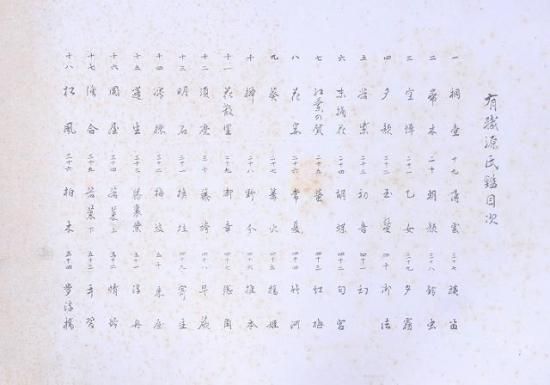 有職源氏鑑目次
一 桐壷
二 帚木
三 空蝉
四 夕顔
五 若紫
六 末摘花
七 紅葉の賀
八 花宴
九 葵
十 榊
十一 花散里
十二 須磨
十三 明石
十四 澪標
十五 蓬生
十六 関屋
十七 絵合
十八 松風
十九 薄雲
二十 朝顔
二十一 乙女
二十二 玉鬘
二十三 初音
二十四 胡蝶
二十五 螢
二十六 常夏
二十七 篝火
二十八 野分
二十九 御幸
三十 藤袴
三十一 槙柱
三十二 梅枝
三十三 藤裏葉
三十四 若菜上
三十五 若菜下
三十六 柏木
三十七 横笛
三十八 鈴虫
三十九 夕霧
四十 御法
四十一 幻
四十二 匂宮
四十三 紅梅
四十四 竹河
四十五 橋姫
四十六 椎本
四十七 総角
四十八 早蕨
四十九 寄生
五十 東屋
五十一 浮舟
五十二 蜻蛉
五十三 手習
五十四 夢浮橋